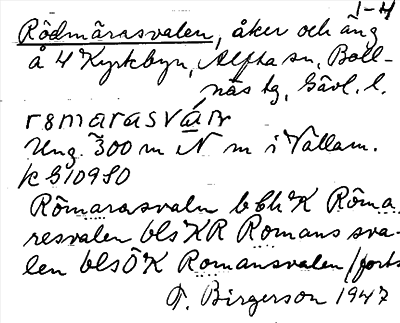 1-4
Rödmårasvalen, åker och äng
å 4 Kyrkbyn, Alfta sn, Boll-
näs tg, Gävl. l.
rømarasvám
Ung. 300 m N m i Vallam.
K G10980
Römarasvaln bbh K Röma
resvalen bls KR Romans sva-
len bls Ö K Romansvalen /forts
T. Birgerson 1947